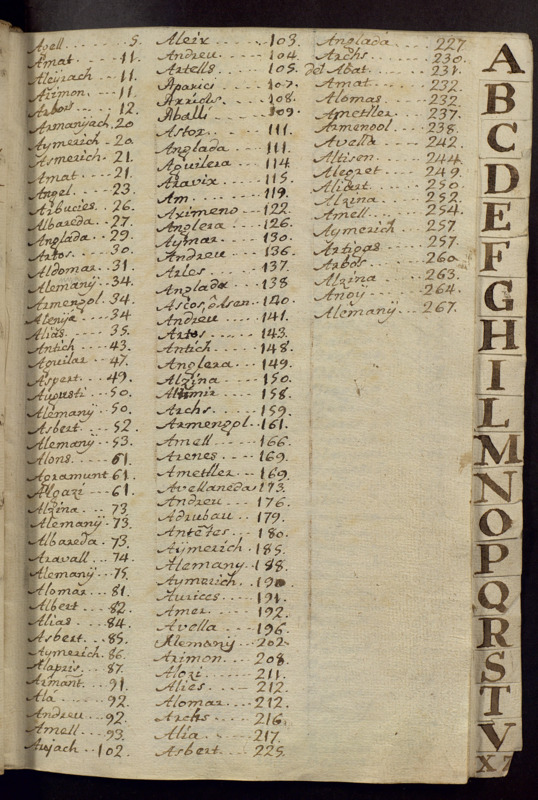 Avell 5.
Amat 11.
Aleixach 11.
Aximon 11.
Arbos 12.
Armanyach 20
Aymerich 20
Asmerich 21.
Amat 21.
Angel 23.
Arbucies 26.
Albareda 27.
Anglada 29.
Artos 30.
Aldomar 31.
Alemany 34.
Armengol 34.
34
Alias 35.
Antich 43.
Aguilar 47.
Aspert 49.
Augusti 50.
Alemany 50.
Asbert 52
Alemany 53.
Alons 61.
Agramunt 61.
61.
Alzina 73
Alemanÿ 73.
Albareda 73.
Aravall 74.
Alemanÿ 75.
Alomar 81.
Albert 82.
Alias 84.
Asbert 85.
Aymerich 86.
Alapris 87.
Armant 91.
Alá 92.
Andreu 92.
Amell 93.
102.
Aleix 103.
Andreu 104.
Artells 105.
Aparici 107.
108.
Aballi 109.
Astor 111.
Anglada 111.
Aguilera 114.
Aravix 115.
Am 119.
Aximeno 122.
Anglera 126.
Aymar 130.
Andreu 136.
Arles 137.
Anglada 138
Ascos, ó Asen 140.
Andreu 141.
Artos 143.
Antich 148.
Anglera 149.
Alzina 150.
Altimir 158.
Archs 159.
Armengol 161.
Amell 166.
Arenes 169.
Ametller 169.
Avellaneda 173.
Andreu 176.
Adrubau 179.
180.
Aÿmerich 185.
Alemany 188.
Aymerich 190
Aurices 191.
Amer 192.
Avella 196.
Alemany 202
Arimon 208.
211.
Alies 212.
Alomar 212.
Archs 216.
Alia 217.
Asbert 225.
Anglada 227
Archs 230.
del Abat 231.
Amat 232.
Alomas 232.
Ametller 237.
Armengol 238.
Avella 242.
Altisen 244.
Alegret 249.
Alibert 250.
Alzina 252.
Amell 254.
Aymerich 257
Artigas 257.
Arbós 260.
Alzina 263.
Anoy 264.
Alemanÿ 267.
A
B
C
D
E
F
G
H
I
L
M
N
O
P
Q
R
S
T
V
X Z